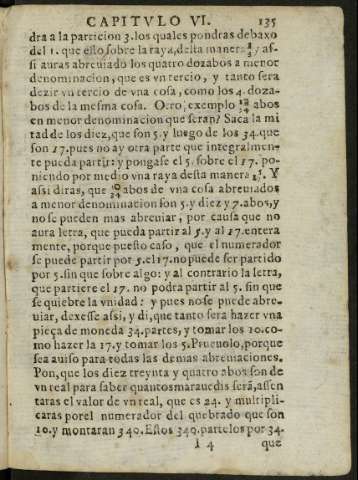 CAPITVLO VI. 135
dra a la particion 3. los quales pondras debaxo
del 1. que esto sobre la raya, desta manera 1/3 y as-
si auras abreuiado los quatro dozabos a menor
denominacion, que es vn tercio, y tanto sera
dezir vn tercio de vna cosa, como los 4. doza-
bos de la mesma cosa. Otro exemplo 10/34 abos
en menor denominacion que seran? Saca la mi
tad de los diez, que son 5. y luego de los 34. que
son 17. pues no ay otra parte que integralmen-
te pueda partir: y pongase el 5. sobre el 17. po-
niendo por medio vna raya desta manera 5/17. Y
assi diras, que 10/34 abos de vna cosa abreuiados
a menor denominacion son 5. y diez y 7. abos, y
no se pueden mas abreuiar, por causa que no
aura letra, que pueda partir al 5. y al 17. entera
mente, porque puesto caso, que el numerador
se puede partir por 5. el 17. no puede ser partido
por 5. sin que sobre algo: y al contrario la letra,
que partiere el 17. no podra partir al 5. sin que
se quiebre la vnidad: y pues no se puede abre-
uiar, dexesse assi, y di, que tanto sera hazer vna
pieça de moneda 34. partes, y tomar los 10. co-
mo hazer la 17. y tomar los 5. Prueuolo, porque
sea auiso para todas las demas abreuiaciones.
Pon, que los diez treynta y quatro abos son de
vn real para saber quantos marauedis será, assen
taras el valor de vn real, que es 34. y multipli-
caras por el numerador del quebrado que son
10. y montaran 340. Estos 340. partelos por 34.
I 4 que